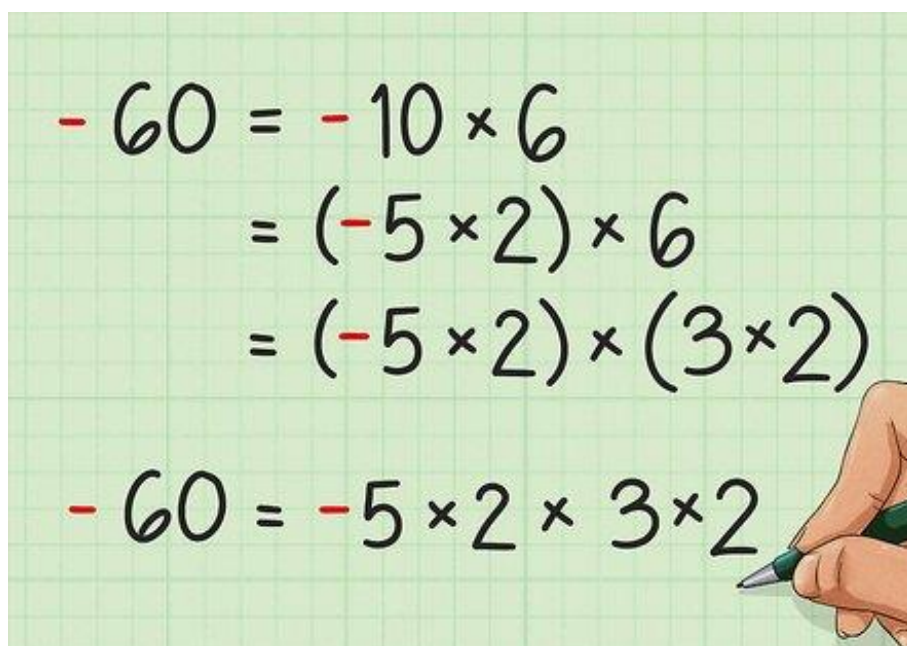 - 60 = - 10 × 6
= (-5 × 2) × 6
= (-5 × 2) × (3 × 2)
- 60 = -5 × 2 × 3 × 2